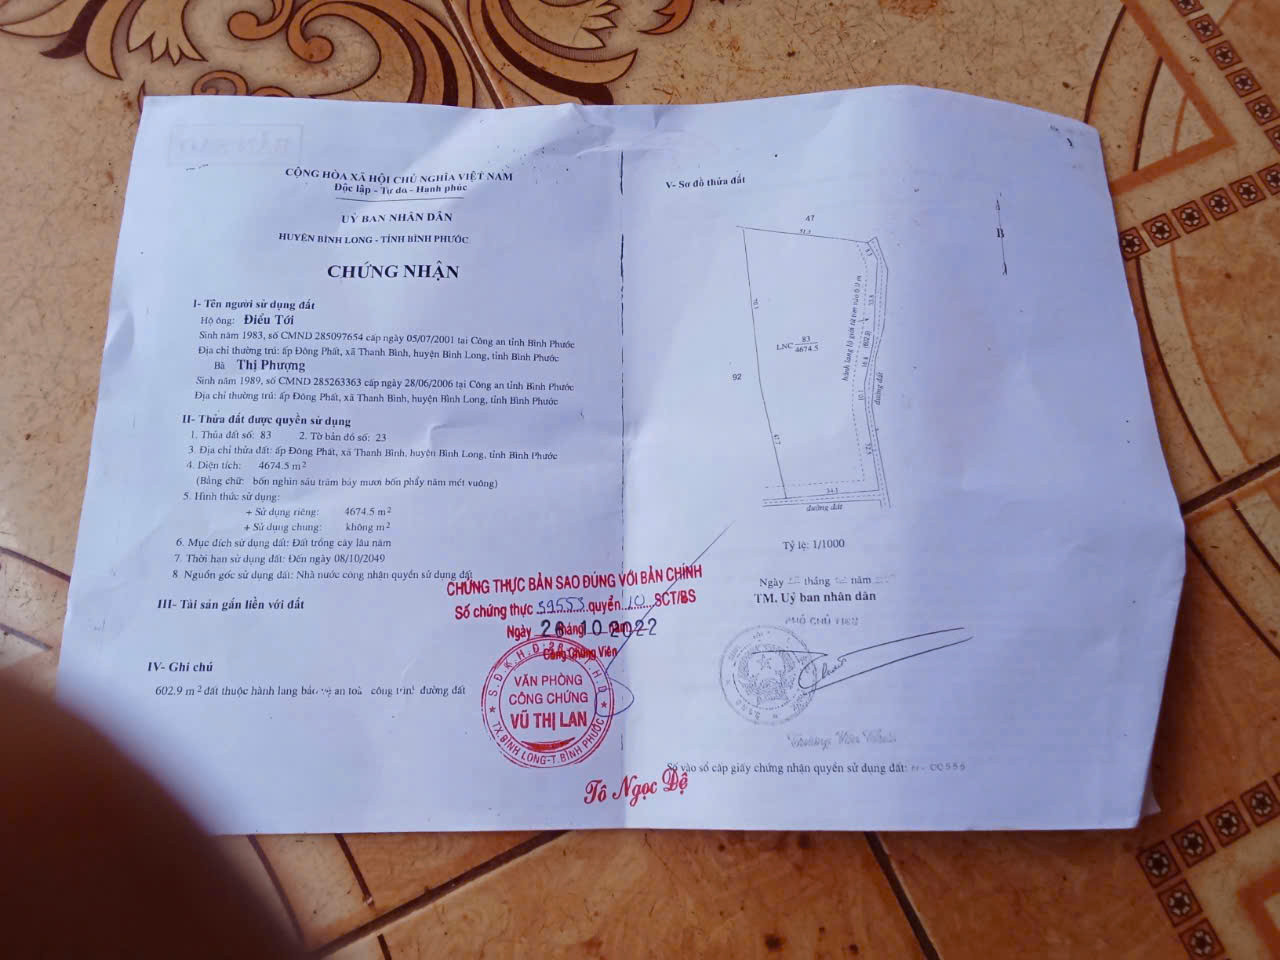 BẢN SAO
CỘNG HÒA XÃ HỘI CHỦ NGHĨA VIỆT NAM
Độc lập - Tự do - Hạnh phúc
UỶ BAN NHÂN DÂN
HUYỆN BÌNH LONG - TỈNH BÌNH PHƯỚC
CHỨNG NHẬN
I- Tên người sử dụng đất
Hộ ông: Điểu Tới
Sinh năm 1983, số CMND 285097654 cấp ngày 05/07/2001 tại Công an tỉnh Bình Phước
Địa chỉ thường trú: ấp Đông Phát, xã Thanh Bình, huyện Bình Long, tỉnh Bình Phước
Bà Thị Phượng
Sinh năm 1989, số CMND 285263363 cấp ngày 28/06/2006 tại Công an tỉnh Bình Phước
Địa chỉ thường trú: ấp Đông Phát, xã Thanh Bình, huyện Bình Long, tỉnh Bình Phước
II- Thửa đất được quyền sử dụng
1. Thửa đất số: 83 2. Tờ bản đồ số: 23
3. Địa chỉ thửa đất: ấp Đông Phát, xã Thanh Bình, huyện Bình Long, tỉnh Bình Phước
4. Diện tích: 4674.5 m²
(Bằng chữ: bốn nghìn sáu trăm bảy mươi bốn phẩy năm mét vuông)
5. Hình thức sử dụng:
+ Sử dụng riêng: 4674.5 m²
+ Sử dụng chung: không m²
6. Mục đích sử dụng đất: Đất trồng cây lâu năm
7. Thời hạn sử dụng đất: Đến ngày 08/10/2049
8. Nguồn gốc sử dụng đất: Nhà nước công nhận quyền sử dụng đất
III- Tài sản gắn liền với đất
IV- Ghi chú
602.9 m² đất thuộc hành lang bảo vệ an toàn công trình đường đất
CHỨNG THỰC BẢN SAO ĐÚNG VỚI BẢN CHÍNH
Số chứng thực 39553 quyển 10 SCT/BS
Ngày 26 tháng 10 năm 2022
Công Chứng Viên
VĂN PHÒNG
CÔNG CHỨNG
VŨ THỊ LAN
TX.BÌNH LONG-T.BÌNH PHƯỚC
Tô Ngọc Dệ
V- Sơ đồ thửa đất
47
51.3
B
LNC 83
4674.5
92
(602.9)
đường đất
34.1
đường đất
Tỷ lệ: 1/1000
Ngày tháng năm
TM. Uỷ ban nhân dân
PHÓ CHỦ TỊCH
Số vào sổ cấp giấy chứng nhận quyền sử dụng đất: 00555